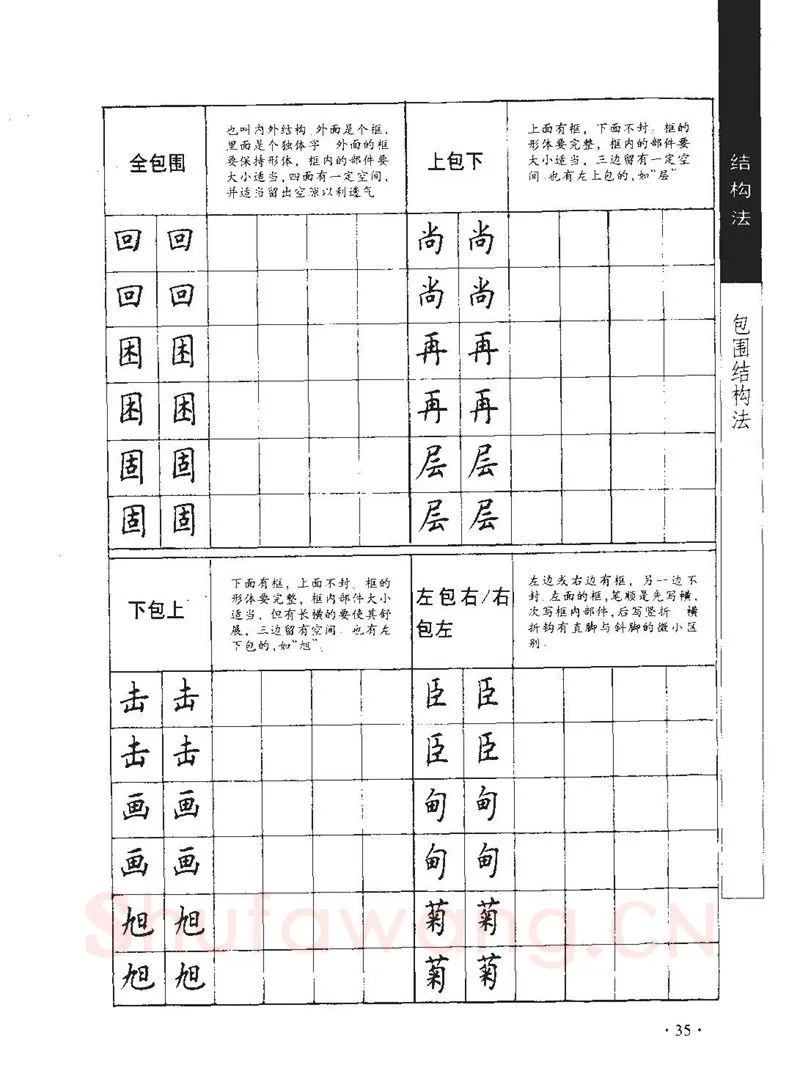 全包围
也叫内外结构.外面是个框,
里面是个独体字 外面的框
要保持形体,框内的部件要
大小适当,四面有一定空间,
并适当留出空隙以利透气
上包下
上面有框,下面不封.框的
形体要完整,框内的部件要
大小适当.三边留有一定空
间.也有左上包的,如“层”
回 回 尚 尚
回 回 尚 尚
困 困 再 再
困 困 再 再
固 固 层 层
固 固 层 层
下包上
下面有框,上面不封.框的
形体要完整,框内部件大小
适当.但有长横的要使其舒
展.三边留有空间.也有左
下包的,如“旭”.
左包右/右
包左
左边或右边有框,另一边不
封.左面的框,笔顺是先写横,
次写框内部件,后写竖折 横
折钩有直脚与斜脚的微小区
别.
击 击 臣 臣
击 击 臣 臣
画 画 甸 甸
画 画 甸 甸
旭 旭 菊 菊
旭 旭 菊 菊
结构法
包围结构法
Shufawang.CN
·35·